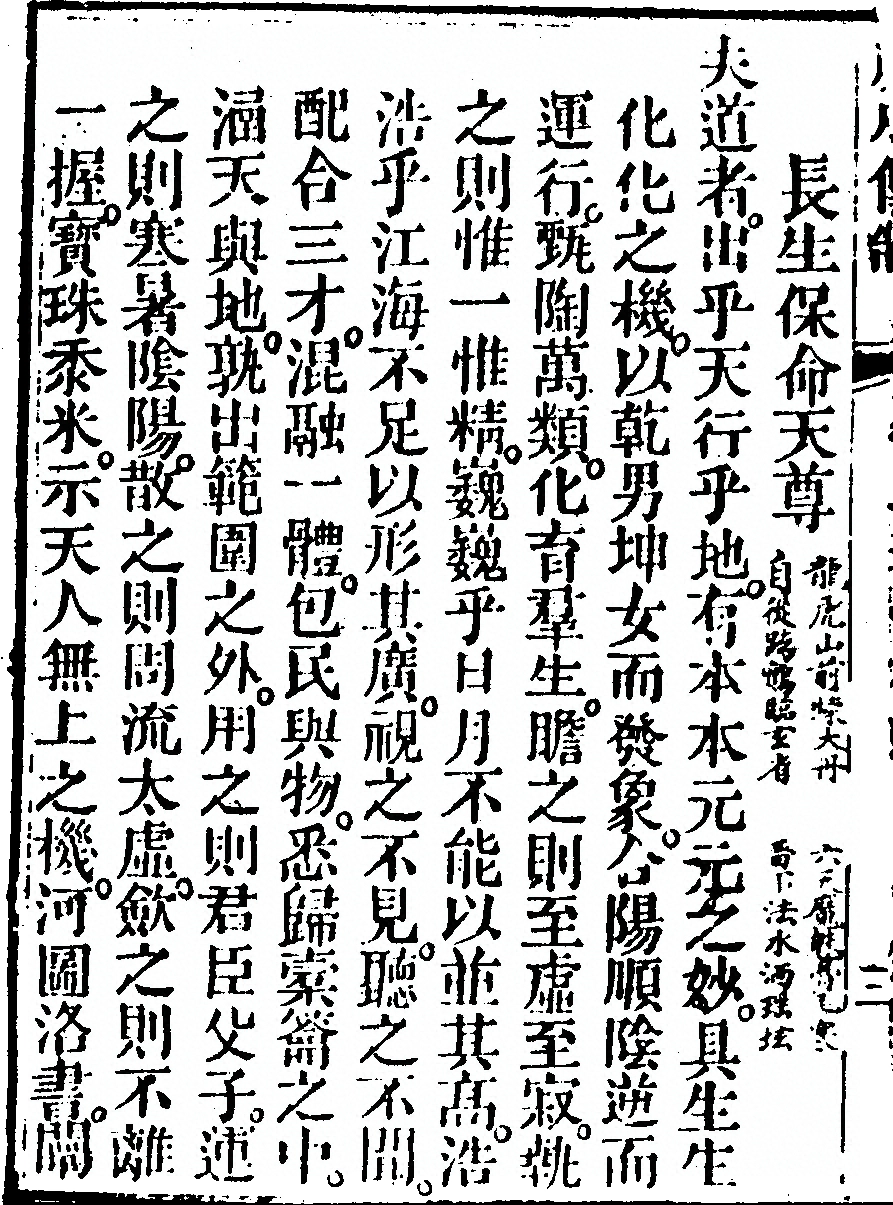 長生保命天尊
龍虎山前煉大丹
自從跨鶴臨玄省
法水洒瑤坛
夫道者出乎天行乎地有本本元元之妙具生生
化化之機以乾男坤女而發象合陽順陰逆而
運行甄陶萬類化育羣生瞻之則至虛至寂執
之則惟一惟精巍巍乎日月不能以並其高浩
浩乎江海不足以形其廣視之不見聽之不聞
配合三才混融一體包民與物悉歸橐籥之中
涵天與地孰出範圍之外用之則君臣父子運
之則寒暑陰陽散之則周流太虛斂之則不離
一握寶珠黍米示天人無上之機河圖洛書闡